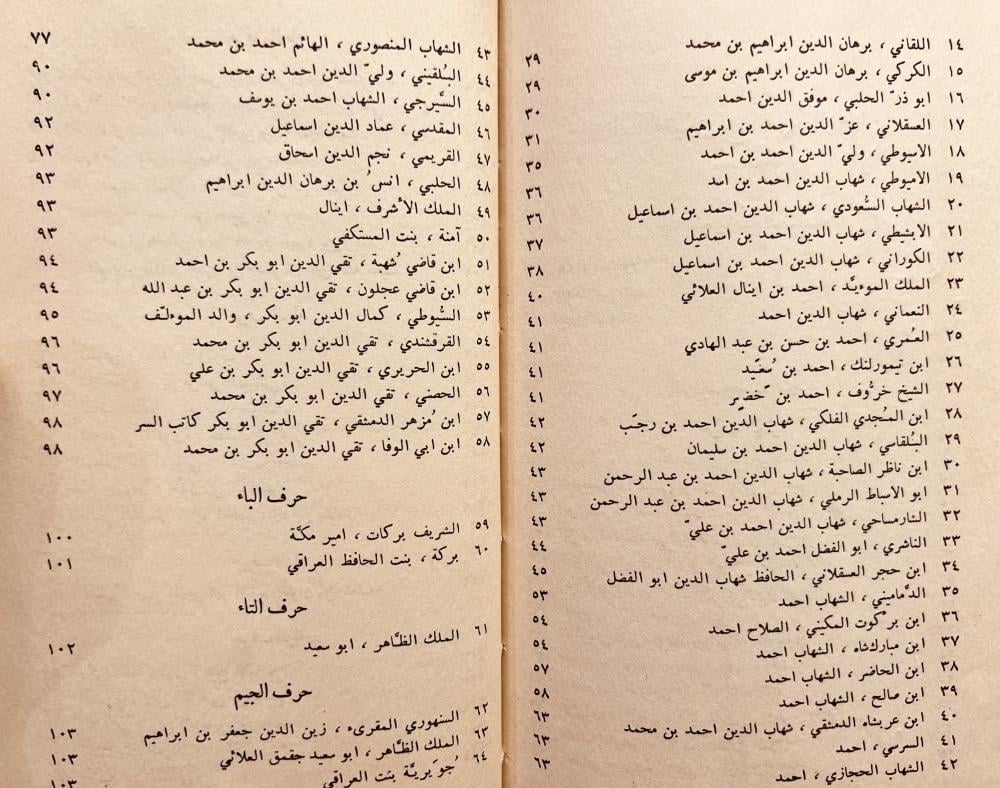 ١٤ اللقاني ، برهان الدين ابراهيم بن محمد ٢٩
١٥ الكركي ، برهان الدين ابراهيم بن موسى ٢٩
١٦ ابو ذرّ الحلبي ، موفق الدين احمد ٣٠
١٧ العسقلاني ، عزّ الدين احمد بن ابراهيم ٣١
١٨ الاسيوطي ، وليّ الدين احمد بن احمد ٣٥
١٩ الاميوطي ، شهاب الدين احمد بن اسد ٣٦
٢٠ الشهاب السُّعودي ، شهاب الدين احمد بن اسماعيل ٣٦
٢١ الابشيطي ، شهاب الدين احمد بن اسماعيل ٣٧
٢٢ الكوراني ، شهاب الدين احمد بن اسماعيل ٣٨
٢٣ الملك الموءيَّد ، احمد بن اينال العلائي ٤٠
٢٤ النعماني ، شهاب الدين احمد ٤١
٢٥ العُمري ، احمد بن حسن بن عبد الهادي ٤١
٢٦ ابن تيمورلنك ، احمد بن ٤١
٢٧ الشيخ خرُّوف ، احمد بن خضر ٤١
٢٨ ابن المجدي الفلكي ، شهاب الدين احمد بن رجب ٤٢
٢٩ البُلقاسي ، شهاب الدين احمد بن سليمان ٤٢
٣٠ ابن ناظر الصاحبة ، شهاب الدين احمد بن عبد الرحمن ٤٣
٣١ ابو الاسباط الرملي ، شهاب الدين احمد بن عبد الرحمن ٤٣
٣٢ الشارمساحي ، شهاب الدين احمد بن عليّ ٤٣
٣٣ الناشري ، ابو الفضل احمد بن عليّ ٤٤
٣٤ ابن حجر العسقلاني ، الحافظ شهاب الدين ابو الفضل ٤٥
٣٥ الدَّماميني ، الشهاب احمد ٥٣
٣٦ ابن بركوت المكيني ، الصلاح احمد ٥٤
٣٧ ابن مباركشاه ، الشهاب احمد ٥٤
٣٨ ابن الحاضر ، الشهاب احمد ٥٧
٣٩ ابن صالح ، الشهاب احمد ٥٨
٤٠ ابن عربشاه الدمشقي ، شهاب الدين احمد بن محمد ٦٣
٤١ السرسي ، احمد ٦٣
٤٢ الشهاب الحجازي ، احمد ٦٣
٤٣ الشهاب المنصوري ، الهائم احمد بن محمد ٧٧
٤٤ البُلقيني ، وليّ الدين احمد بن محمد ٩٠
٤٥ السَّيرجي ، الشهاب احمد بن يوسف ٩٠
٤٦ المقدسي ، عماد الدين اسماعيل ٩٢
٤٧ القريمي ، نجم الدين اسحاق ٩٢
٤٨ الحلبي ، انسُ بن برهان الدين ابراهيم ٩٣
٤٩ الملك الأشرف ، اينال ٩٣
٥٠ آمنة ، بنت المستكفي ٩٣
٥١ ابن قاضي شُهبة ، تقي الدين ابو بكر بن احمد ٩٤
٥٢ ابن قاضي عجلون ، تقي الدين ابو بكر بن عبد الله ٩٤
٥٣ السُّيوطي ، كمال الدين ابو بكر ، والد الموءلّف ٩٥
٥٤ القرقشندي ، تقي الدين ابو بكر بن محمد ٩٦
٥٥ ابن الحريري ، تقي الدين ابو بكر بن علي ٩٦
٥٦ الحصني ، تقي الدين ابو بكر بن محمد ٩٧
٥٧ ابن مُزهر الدمشقي ، تقي الدين ابو بكر كاتب السر ٩٨
٥٨ ابن ابي الوفا ، تقي الدين ابو بكر بن محمد ٩٨
حرف الباء
٥٩ الشريف بركات ، امير مكّة ١٠٠
٦٠ بركة ، بنت الحافظ العراقي ١٠١
حرف التاء
٦١ الملك الظَّاهر ، ابو سعيد ١٠٢
حرف الجيم
٦٢ السنهوري المقرىء ، زين الدين جعفر بن ابراهيم ١٠٣
٦٣ الملك الظَّاهر ، ابو سعيد جقمق العلائي ١٠٣
٦٤ جُوَيريَّة بنت العراقي ١٠٣